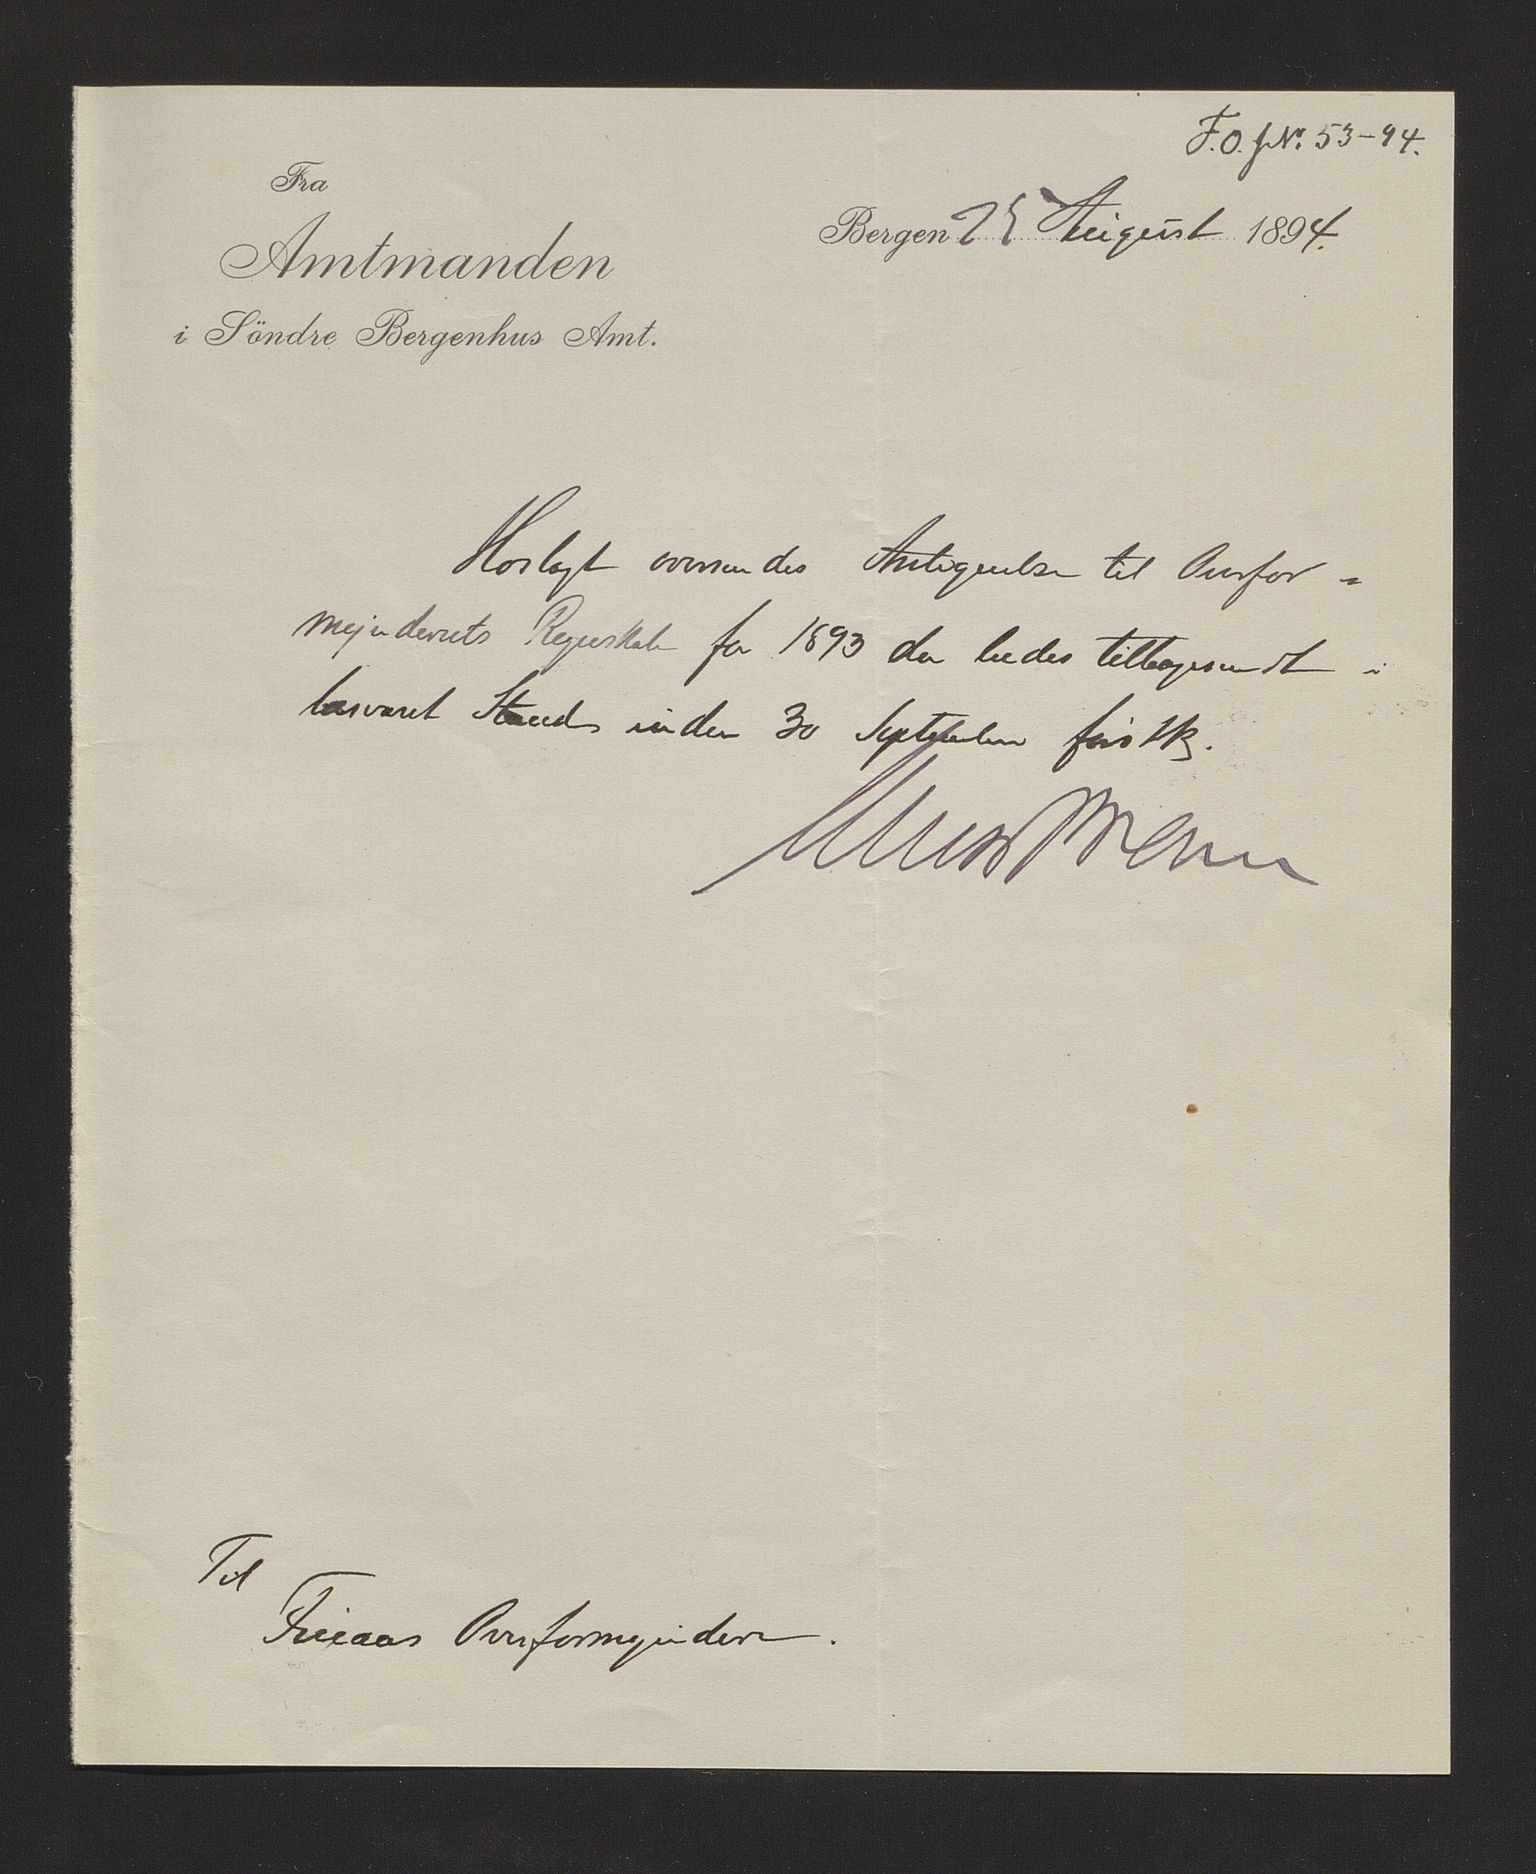 F.O. JN. 53-94.
Fra
Amtmanden
i Söndre Bergenhus Amt.
Bergen 25 August 1894.
Hoslagt oversendes Antegnelser til Overfor-
mynderiets Regnskab for 1893 der bedes tilbagesendt i
besvaret Stand inden 30 September førstk.
Til
Finaas Overformynderi.